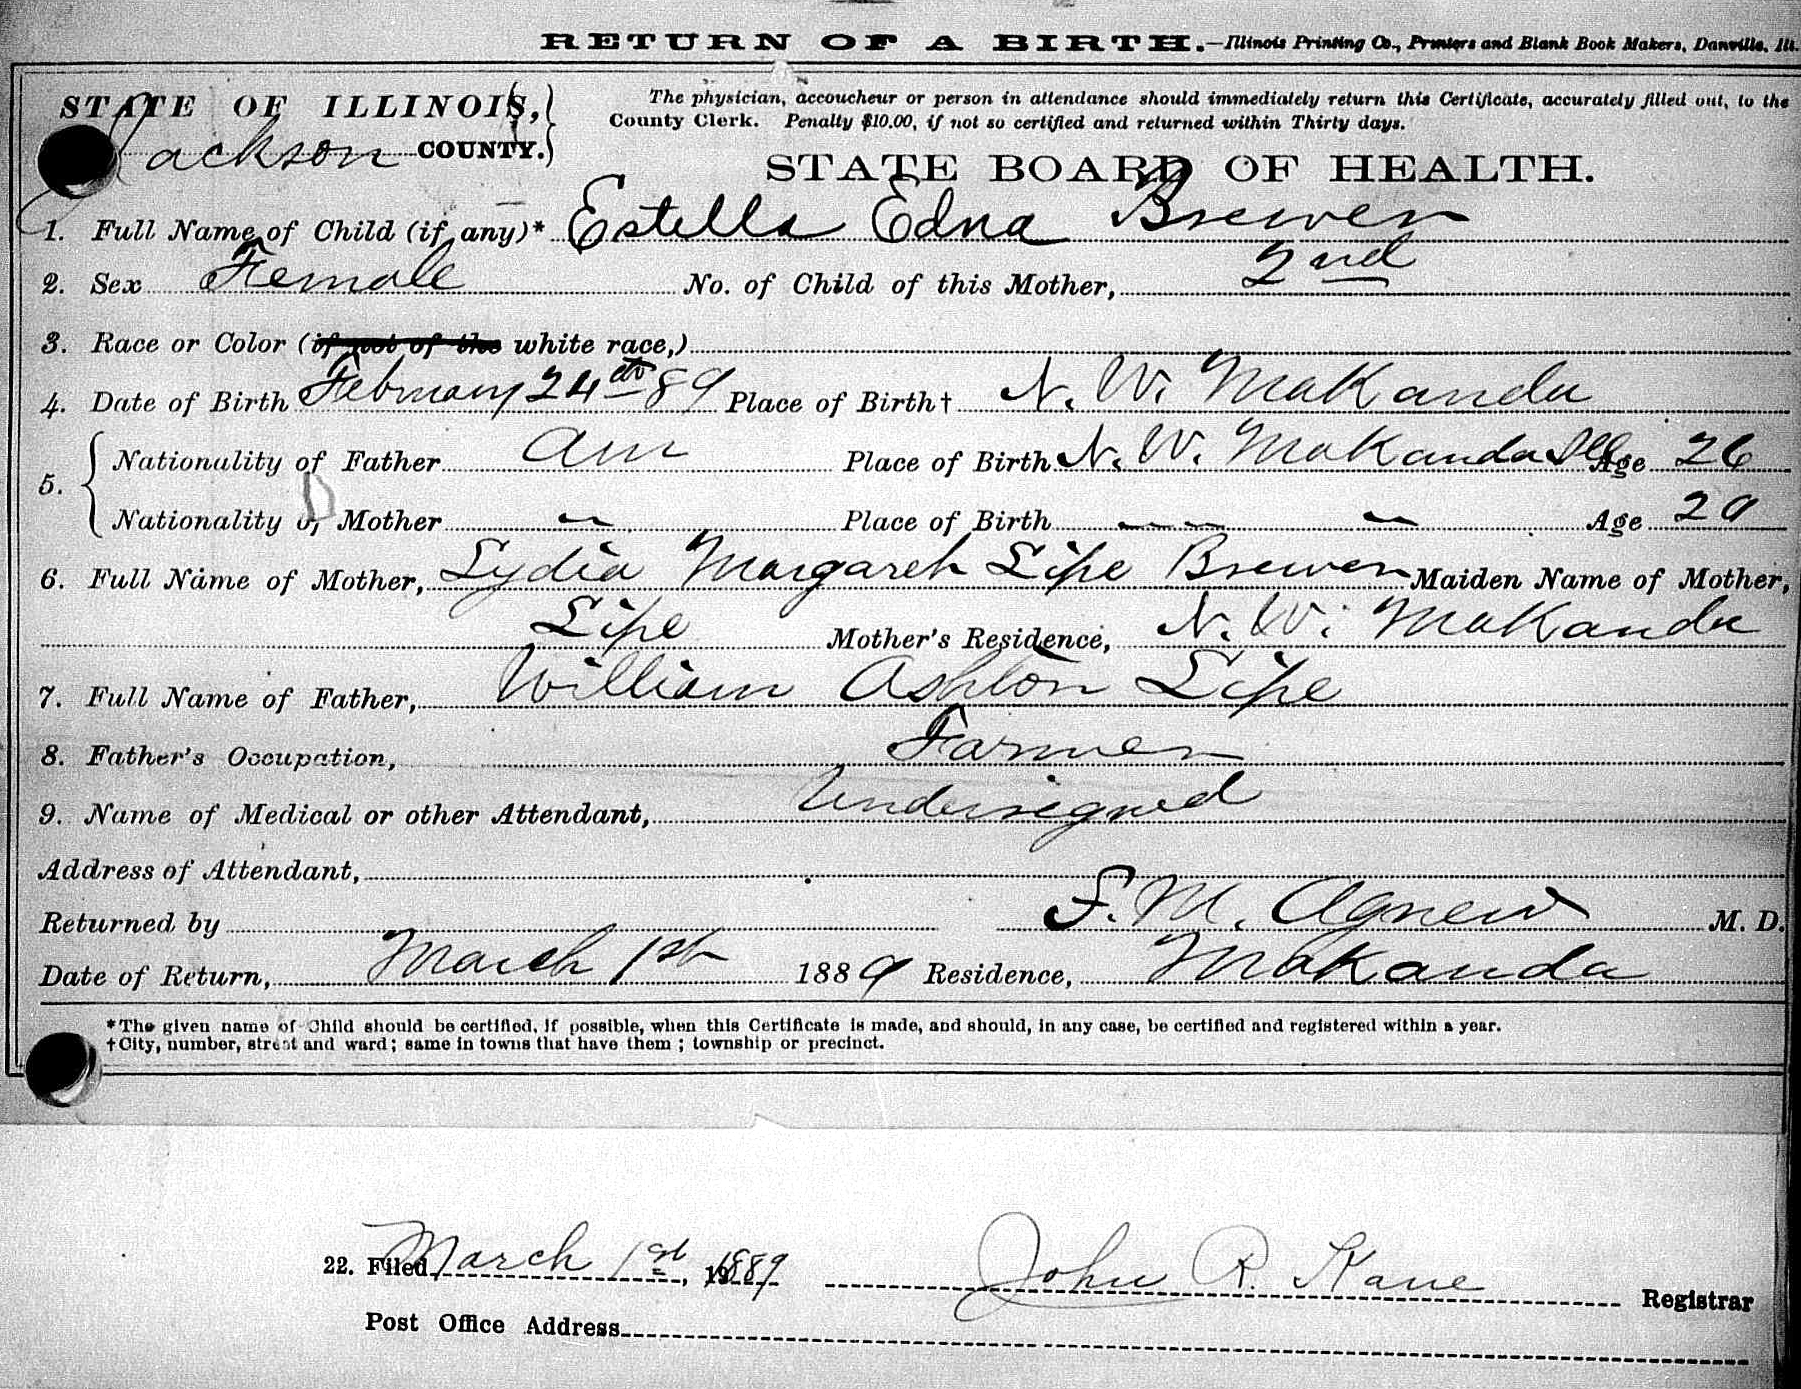 RETURN OF A BIRTH.—Illinois Printing Co., Printers and Blank Book Makers, Danville, Ill.
STATE OF ILLINOIS,
Jackson COUNTY.
The physician, accoucheur or person in attendance should immediately return this Certificate, accurately filled out, to the
County Clerk. Penalty $10.00, if not so certified and returned within Thirty days.
STATE BOARD OF HEALTH.
1. Full Name of Child (if any)* Estella Edna Brewer
2. Sex Female No. of Child of this Mother, 2nd
3. Race or Color (if not of the white race,)
4. Date of Birth February 24th 89 Place of Birth† N. W. Makanda
5. Nationality of Father Am Place of Birth N. W. Makanda Ill Age 26
Nationality of Mother " Place of Birth " " " Age 20
6. Full Name of Mother, Lydia Margaret Lipe Brewer Maiden Name of Mother,
Lipe Mother's Residence, N. W. Makanda
7. Full Name of Father, William Ashton Lipe
8. Father's Occupation, Farmer
9. Name of Medical or other Attendant, Undersigned
Address of Attendant,
Returned by F. M. Agnew M. D.
Date of Return, March 1st 1889 Residence, Makanda
*The given name of Child should be certified, if possible, when this Certificate is made, and should, in any case, be certified and registered within a year.
†City, number, street and ward; same in towns that have them; township or precinct.
22. Filed March 1st, 1889 John R. Kane Registrar
Post Office Address